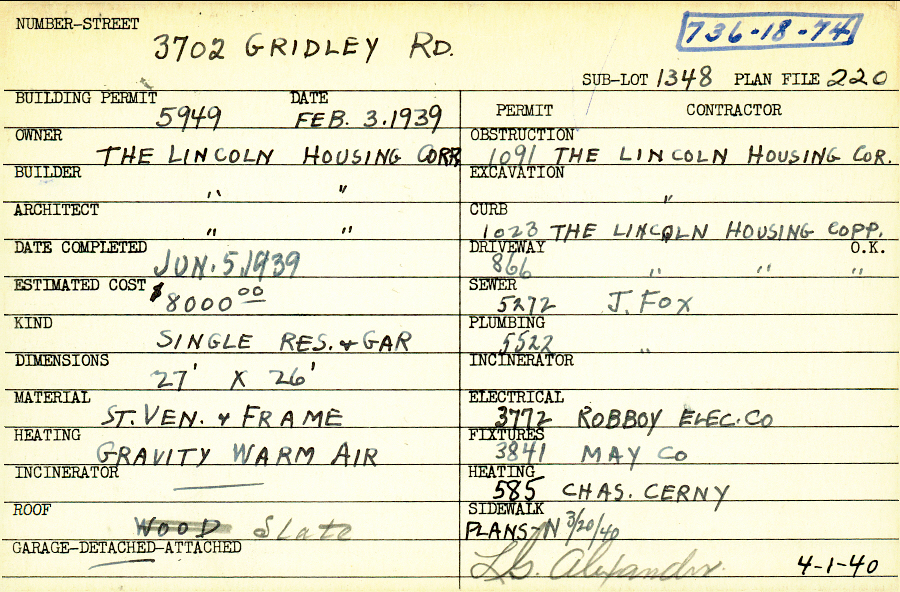 NUMBER-STREET
3702 GRIDLEY RD.
736-18-74
SUB-LOT 1348 PLAN FILE 220
BUILDING PERMIT DATE
5949 FEB. 3.1939
OWNER
THE LINCOLN HOUSING CORR
BUILDER
" "
ARCHITECT
" "
DATE COMPLETED
JUN. 5,1939
ESTIMATED COST $8000 00
KIND
SINGLE RES. & GAR
DIMENSIONS
27' X 26'
MATERIAL
ST. VEN. & FRAME
HEATING
GRAVITY WARM AIR
INCINERATOR
ROOF
WOOD Slate
GARAGE-DETACHED-ATTACHED
PERMIT CONTRACTOR
OBSTRUCTION
1091 THE LINCOLN HOUSING COR.
EXCAVATION
"
CURB
1023 THE LINCOLN HOUSING COPP.
DRIVEWAY O.K.
866 " " "
SEWER
5272 J. FOX
PLUMBING
5522 "
INCINERATOR
ELECTRICAL
3772 ROBBOY ELEC. CO
FIXTURES
3841 MAY CO
HEATING
585 CHAS. CERNY
SIDEWALK
PLANS-N 3/20/40
Alexander 4-1-40